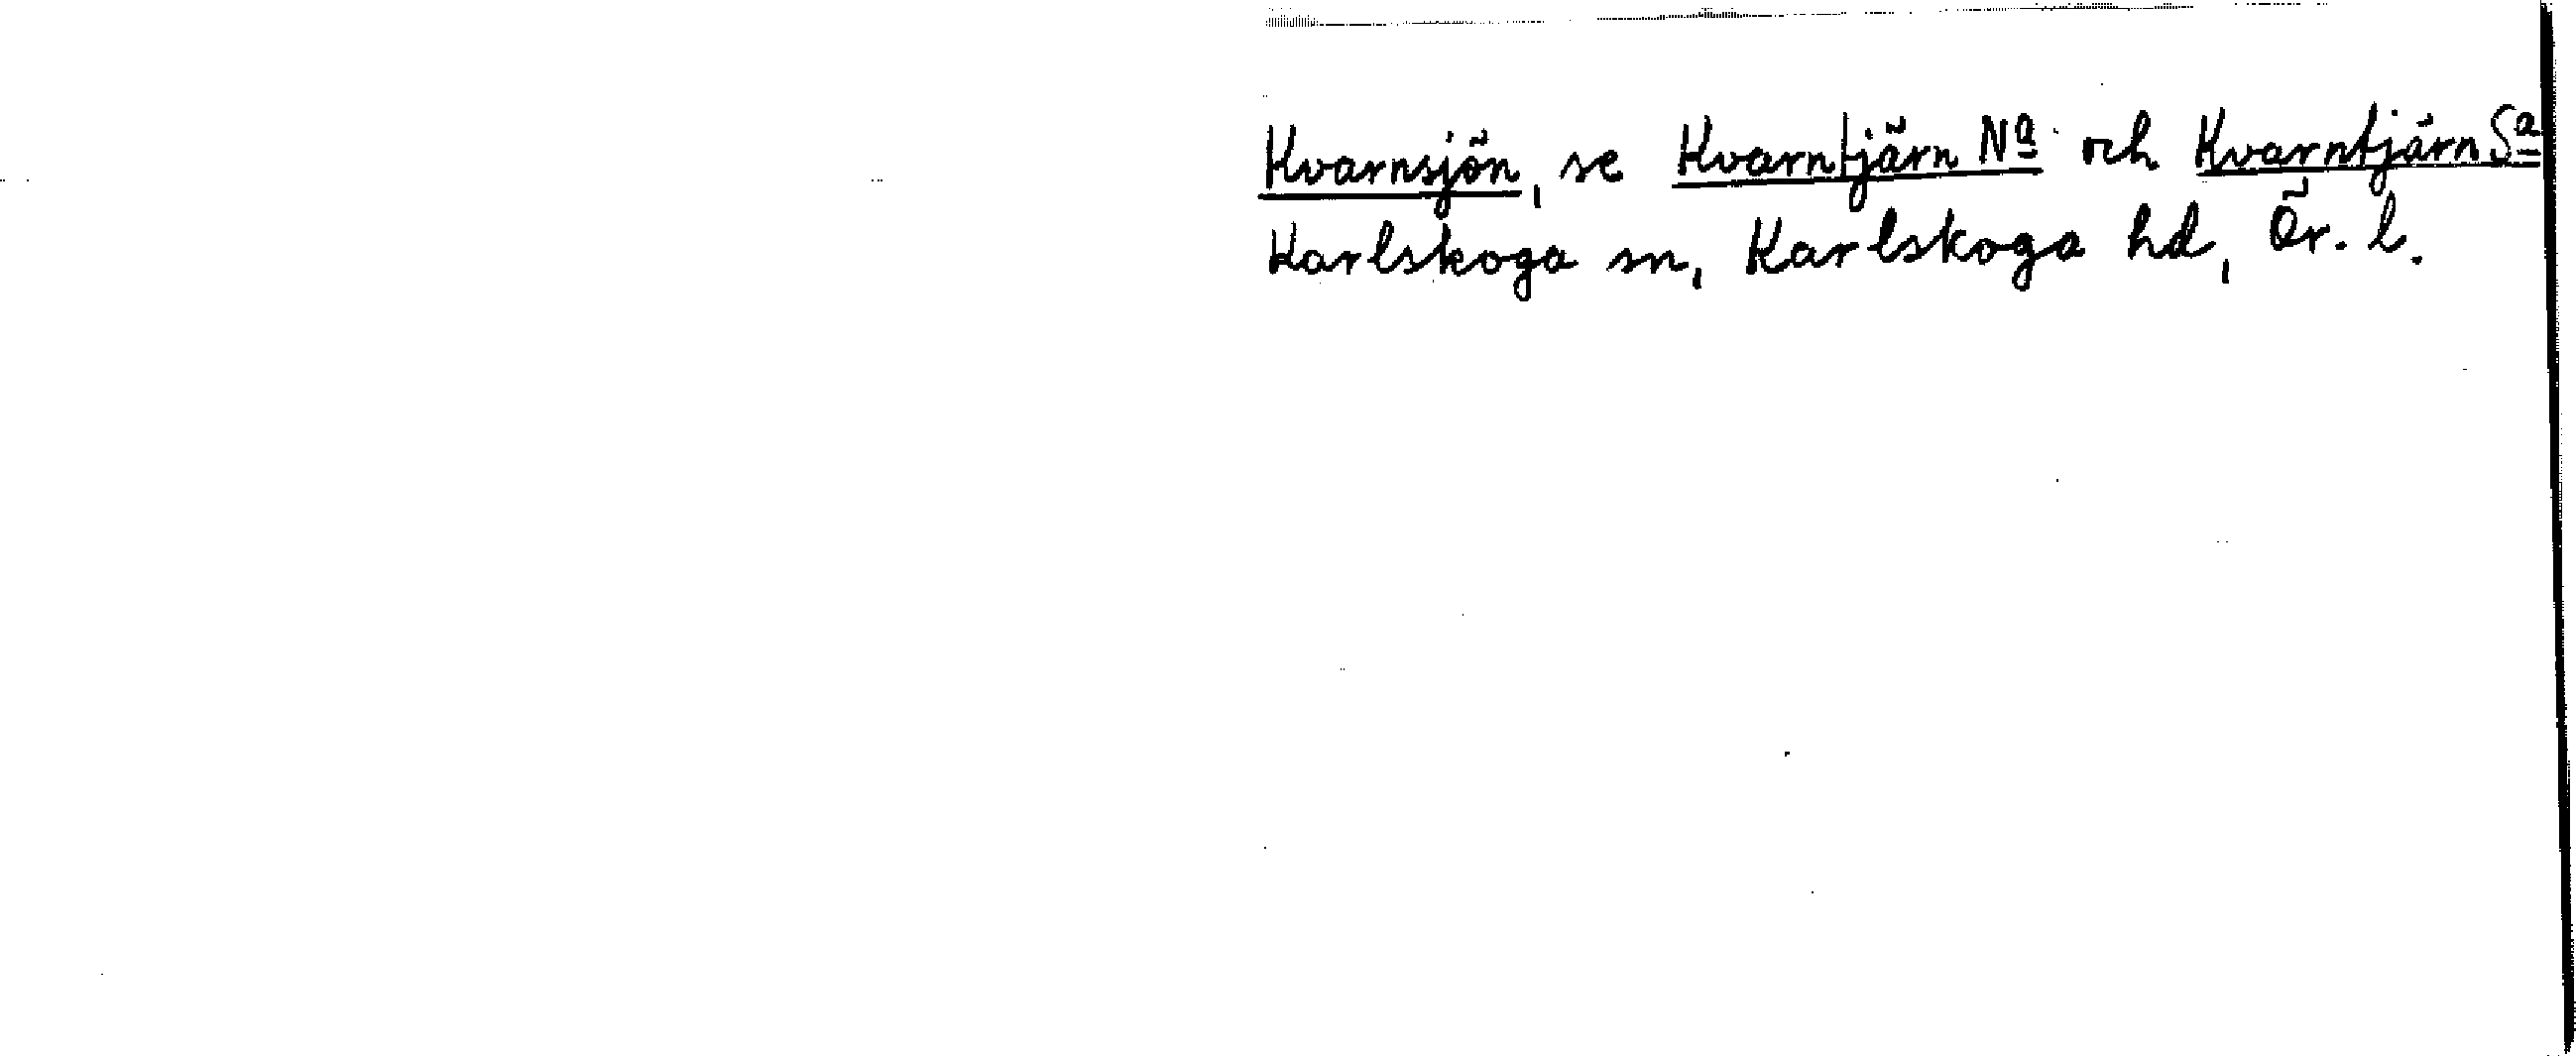 Kvarnsjön, se Kvarntjärn Nª och Kvarntjärn Sª
Karlskoga sn, Karlskoga hd, Ör. l.